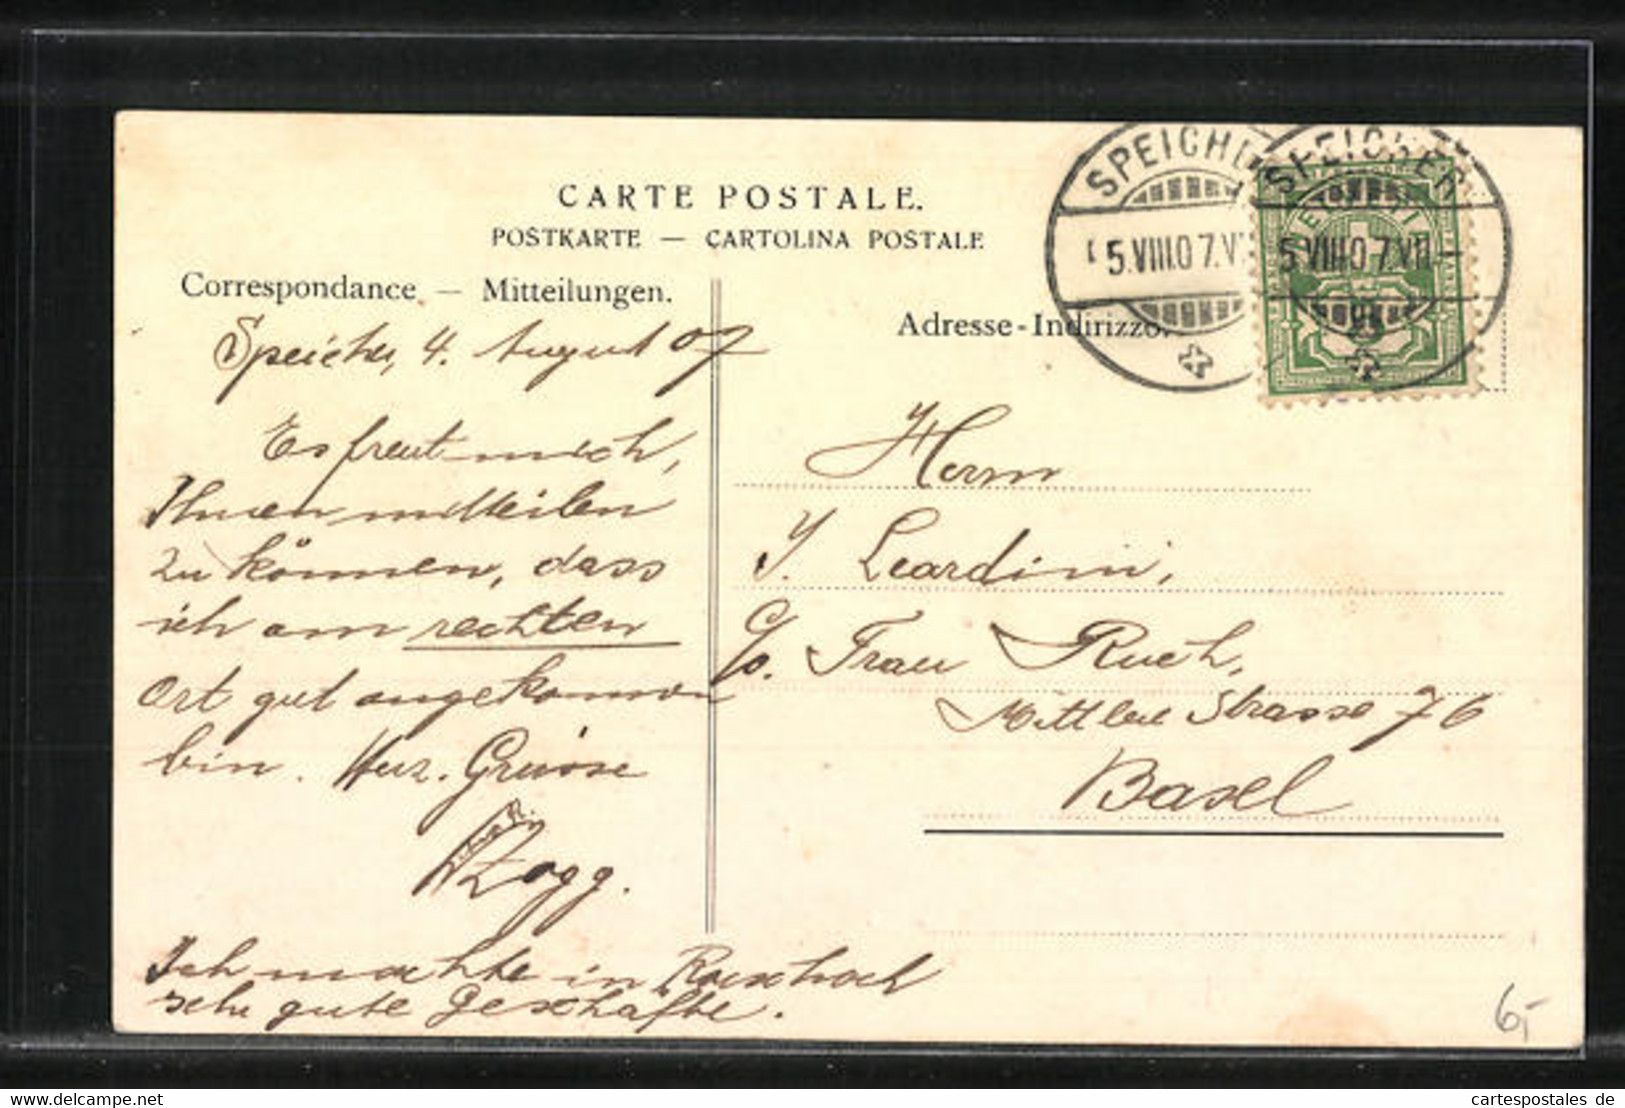 CARTE POSTALE.
POSTKARTE — CARTOLINA POSTALE
Correspondance — Mitteilungen.
Speicher, 4. August 07
Es freut mich,
Ihnen mitteilen
zu können, dass
ich am rechten
Ort gut angekommen
bin. Herz. Grüsse
Zogg.
Ich machte in Rorschach
sehr gute Geschäfte.
Adresse-Indirizzo.
SPEICHER
5.VIII.07.VII.–
SPEICHER
5.VIII.07.VII.–
Herrn
J. Leardini,
c/o. Frau Ruch,
Mittlere Strasse 76
Basel
6,-
www.cartespostales.com
cartespostales de